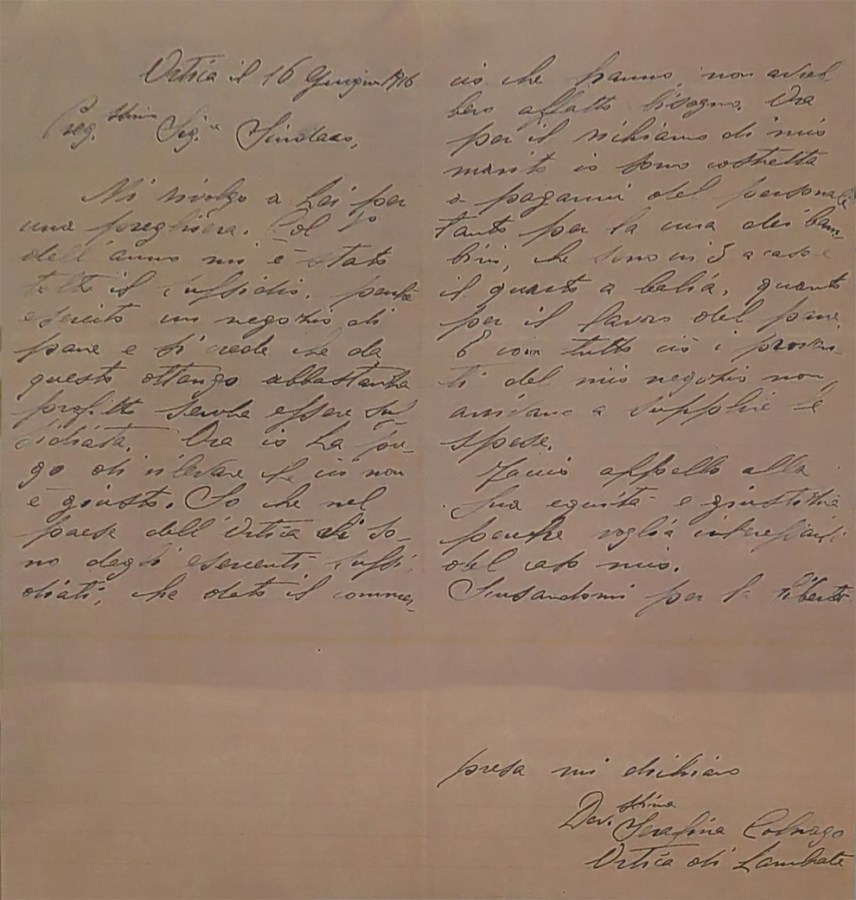 Ortica il 16 Giugno 1916
Preg.stimo Sig.r Sindaco,
Mi rivolgo a Lei per
una preghiera. Col 1o
dell'anno mi è stato
tolto il sussidio, perchè
esercito un negozio di
pane e si crede che da
questo ottengo abbastanza
profitto senza essere sus
sidiata. Ora io La pre-
go di rilevare se ciò non
è giusto. So che nel
paese dell'Ortica vi so-
no degli esercenti sussi
diati, che dato il commer-
cio che hanno, non avreb
bero affatto bisogno. Ora
per il richiamo di mio
marito io sono costretta
a pagarmi del personale
tanto per la cura dei bam-
bini, che sono in 3 a casa e
il quarto a balia, quanto
per il lavoro del pane.
E con tutto ciò i proven-
ti del mio negozio non
arrivano a supplire le
spese.
Faccio appello alla
Sua equità e giustizia
perchè voglia interessarsi
del caso mio.
Scusandomi per la libertà
presa mi dichiaro
Dev.stima
Serafina Colnago
Ortica di Lambrate